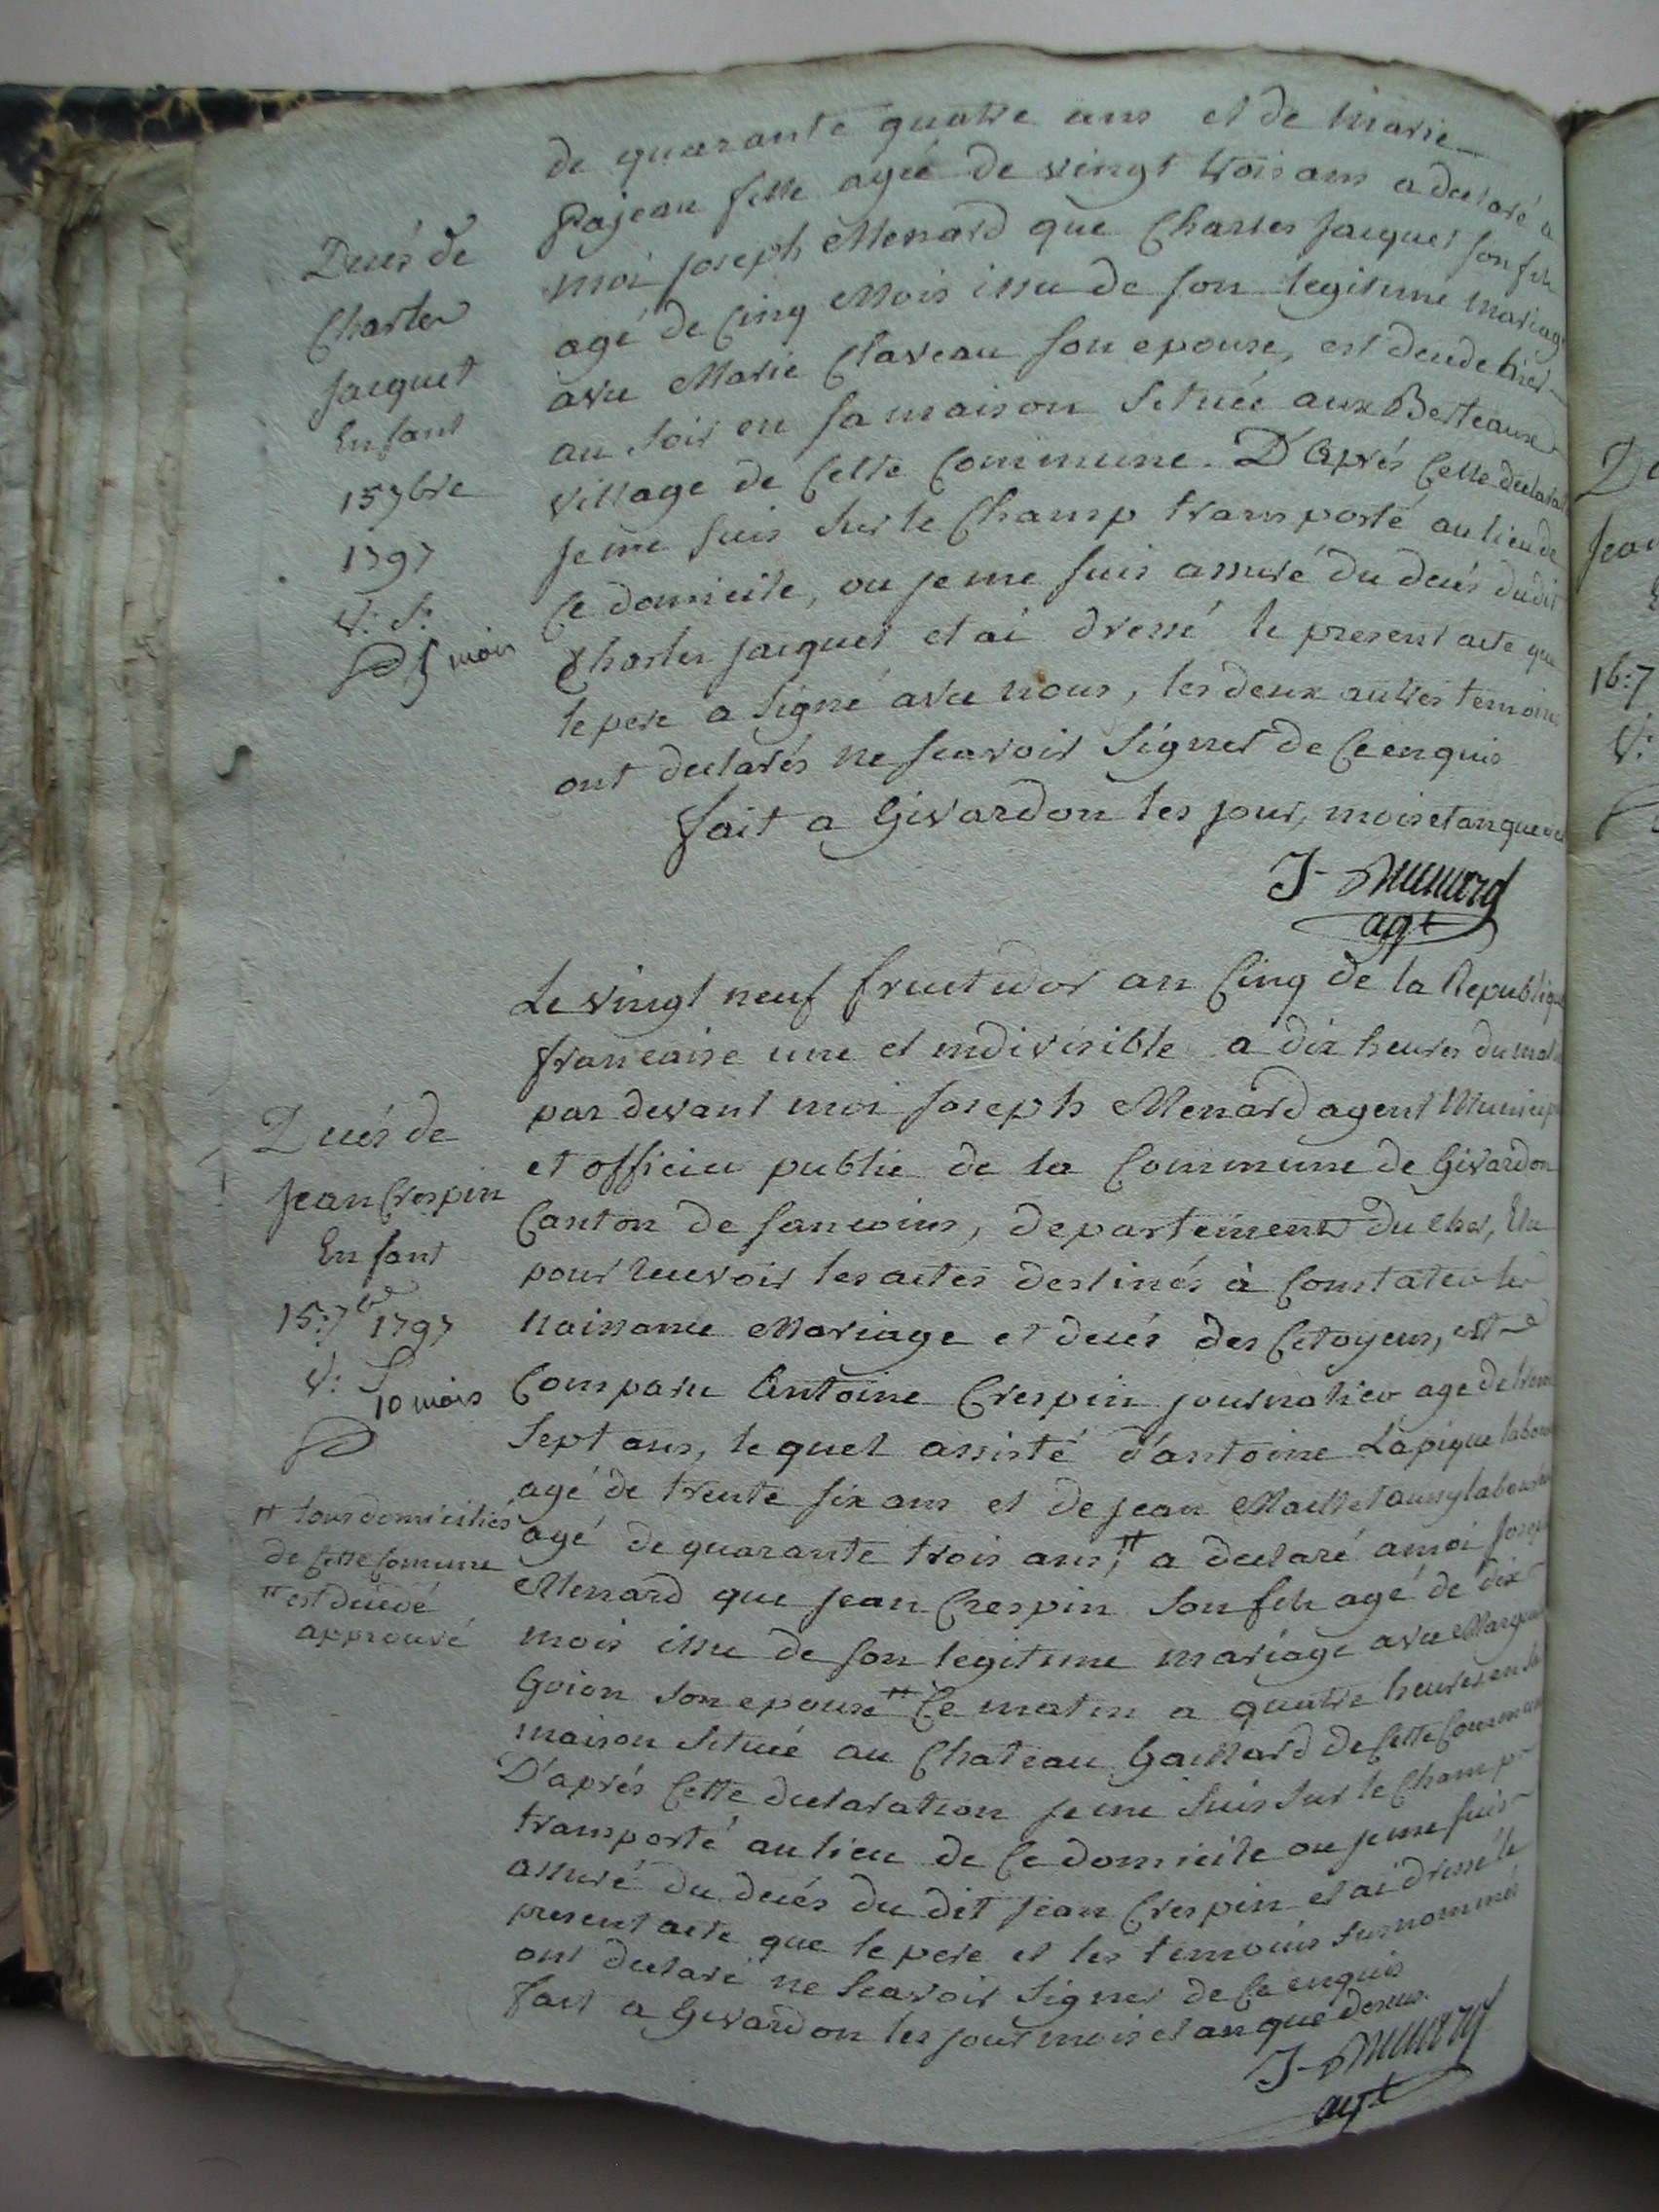 de quarante quatre ans et de Marie
Pajeau fille agée de vingt trois ans a declaré a
moi Joseph Menard que Charles Jacquet son fils
agé de Cinq Mois issu de son legitime mariage
avec Marie Claveau son epouse, est decedé hier
au soir en sa maison Située aux Berteaux
village de Cette Commune. D'après Cette declarat
Je me suis Sur le Champ transporté au lieu de
Ce domicile, ou je me suis assuré du decés dudit
Charles Jacquet et ai dressé le present acte que
le pere a Signé avec nous, les deux autres temoins
ont declarés ne scavoir Signer de Ce enquis
fait a Givardon les jour, mois et an que
J- Menard
agt
Decés de
Charles
Jacquet
Enfant
15 7bre
1797
V: S:
5 mois
Le vingt neuf fructidor an Cinq de la Republique
francaise une et indivisible a dix heures du mat
par devant moi Joseph Menard agent Municip
et officier public de la Commune de Givardon
Canton de Sancoins, departement du Cher, Elu
pour recevoir les actes destinés à Constater les
naissance Mariage et decés des Citoyens, est
Comparu Antoine Crespin journalier age de tren
Sept ans, le quel assisté d'antoine Lapique labour
agé de trente six ans et de Jean Maillet aussy laboureur
agé de quarante trois ans, # a declaré a moi Joseph
Menard que Jean Crespin Son fils agé de dix
mois issu de son legitime mariage avec Marguerit
Goion son epouse # Ce matin a quatre heures en sa
maison Située au Chateau Gaillard de Cette Commune
D'aprés Cette declaration je me Suis Sur le Champ
transporté au lieu de Ce domicile ou je me suis
assuré du decés du dit Jean Crespin et ai dressé le
present acte que le pere et les temoins Susnommés
ont declaré ne Scavoir Signer de Ce enquis
fait a Givardon les jour mois et an que dessus.
J- Menard
agt
Decés de
Jean Crespin
Enfant
15: 7bre 1797
V: S
10 mois
# tous domiciliés
de Cette Comune
# est décédé
approuvé
De
Jean
16: 7
V: